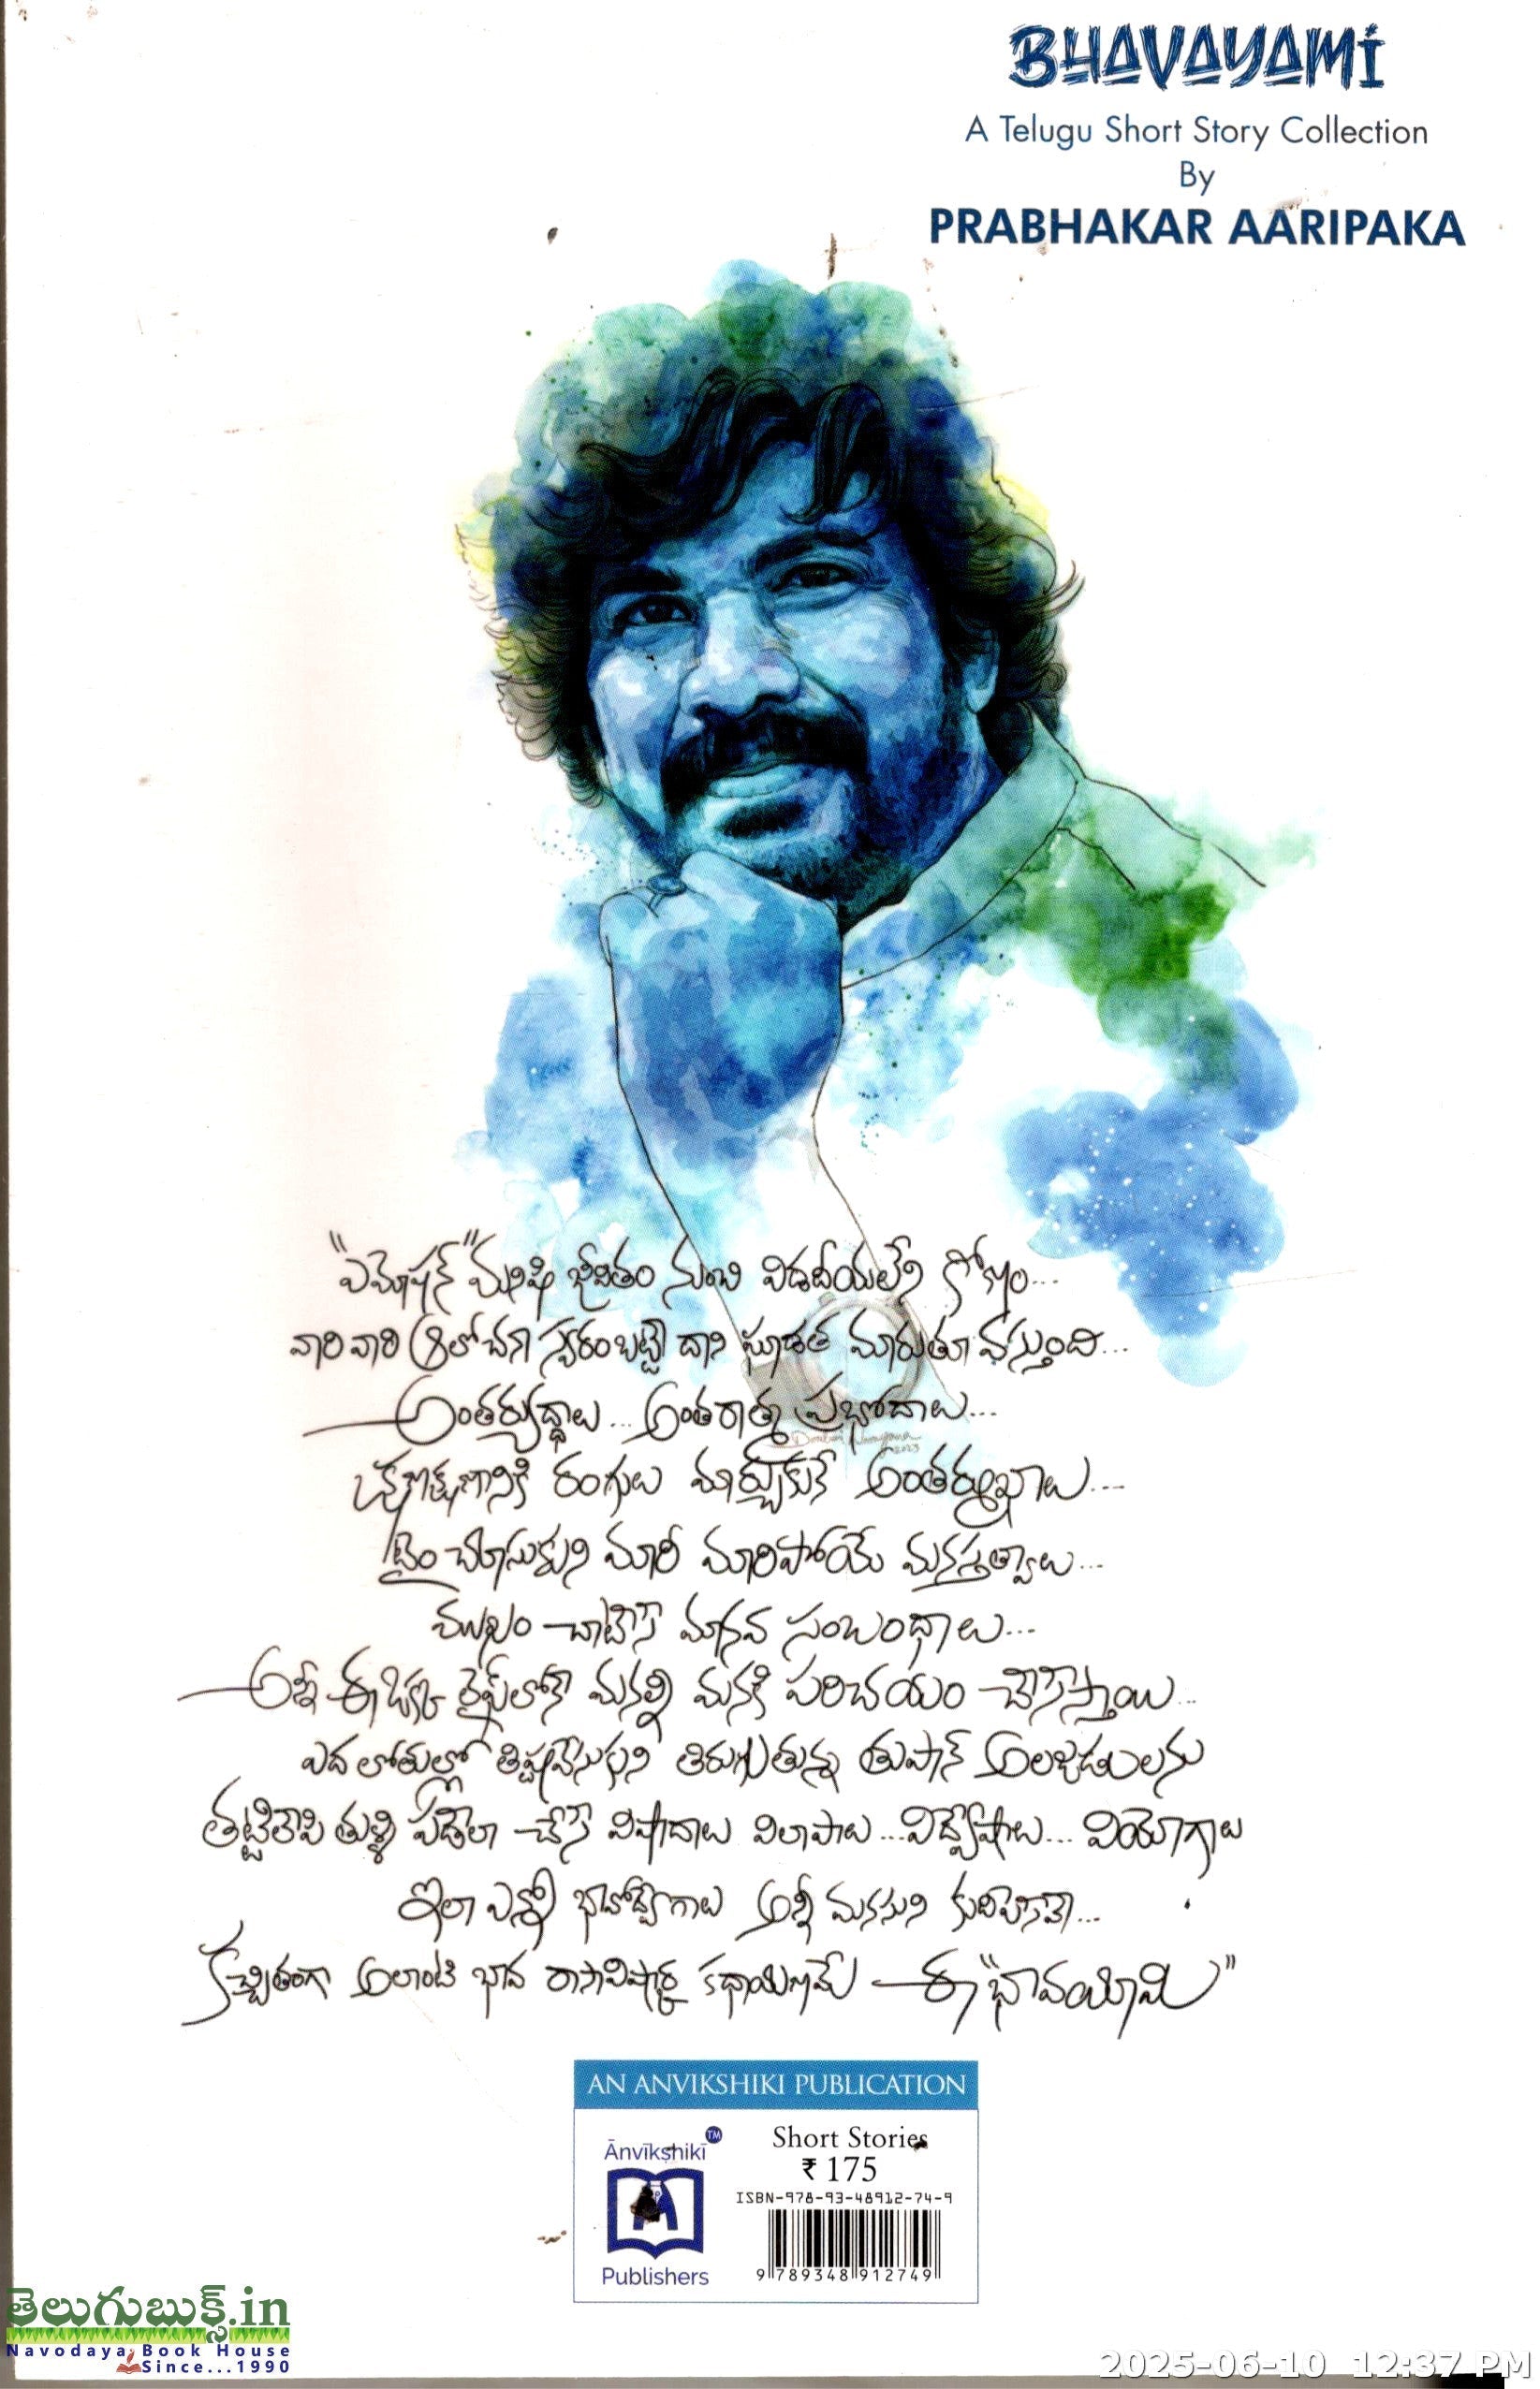 BHAVAYAMI
A Telugu Short Story Collection
By
PRABHAKAR AARIPAKA
"ఎమోషన్" మనిషి జీవితం నుంచి విడదీయలేని కోణం...
వారి వారి ఆలోచనా స్వరం బట్టి దాని మారుతూ వస్తుంది...
అంతర్యుద్ధాలు... అంతరాత్మ ప్రభోదాలు...
2023
క్షణక్షణానికి రంగులు మార్చుకునే అంతర్ముఖాలు...
టైం చూసుకుని మారీ మారిపోయే మనస్తత్వాలు...
ముఖం చాటేసే మానవ సంబంధాలు...
అన్నీ ఈ ఒక్క లైఫ్‌లోనే మనల్ని మనకి పరిచయం చేసేస్తాయి...
ఎద లోతుల్లో తిష్టవేసుకుని తిరుగుతున్న తుఫాన్ అలజడులను
తట్టిలేపి తుళ్ళి పడేలా చేసే విషాదాలు విలాపాలు... విద్వేషాలు... వియోగాలు
ఇలా ఎన్నో భావోద్వేగాలు అన్నీ మనసుని కుదిపేసేవే...
కచ్చితంగా అలాంటి భావ రాసావిష్కార్ల కథాయిణమే ఈ "భావయామి"
AN ANVIKSHIKI PUBLICATION
Ānvīkṣhikī TM
Publishers
Short Stories
₹ 175
ISBN-978-93-48912-74-9
9 789348 912749
తెలుగుబుక్స్.in
Navodaya Book House
Since...1990
2025-06-10 12:37 PM